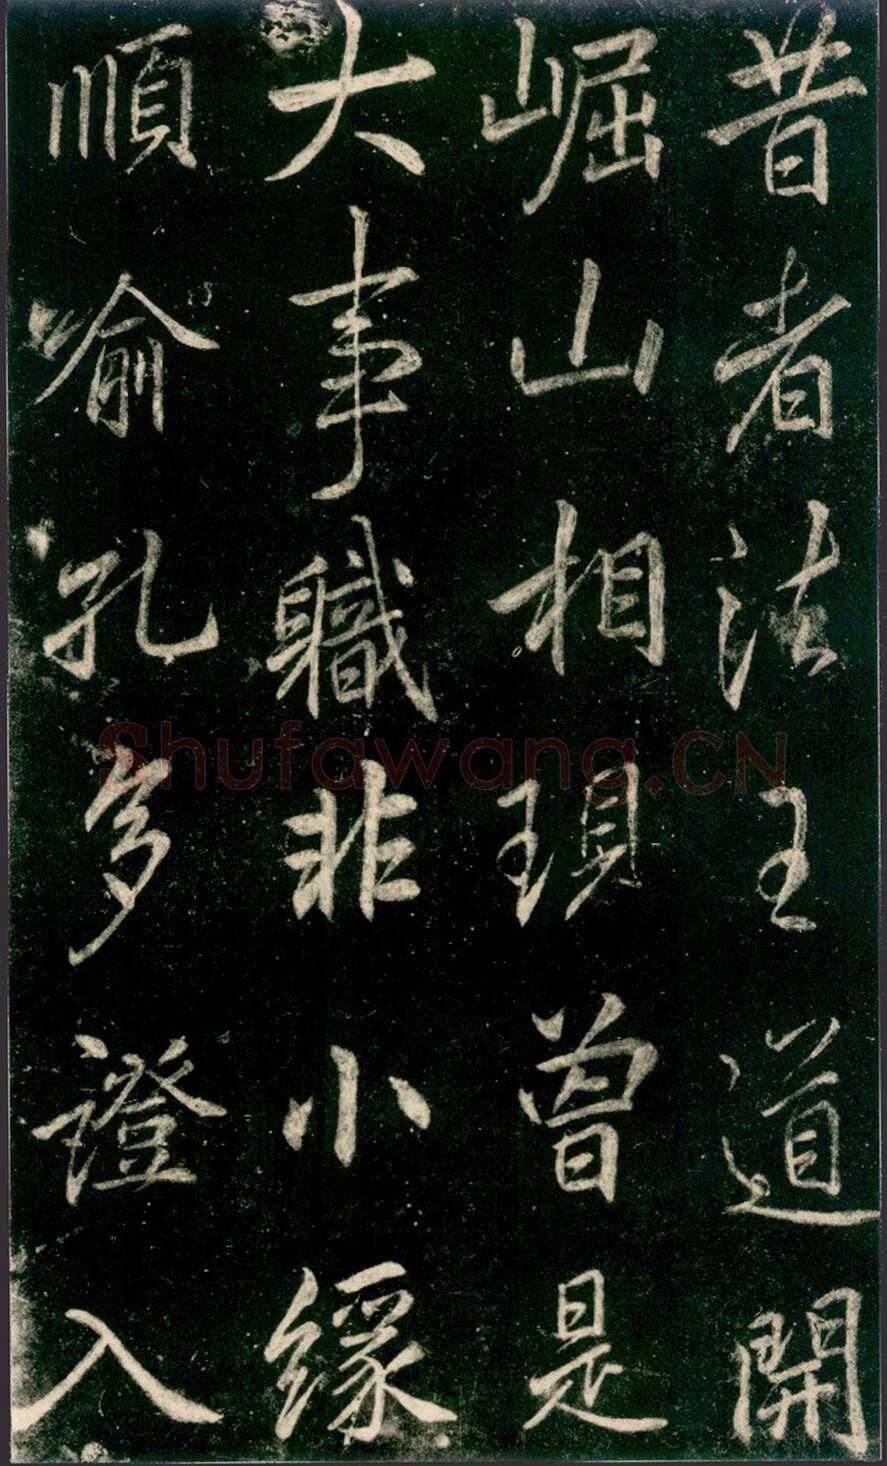 昔者法王道開
崛山相現曾是
大事職非小緣
順喻孔多證入
Shufawang.CN